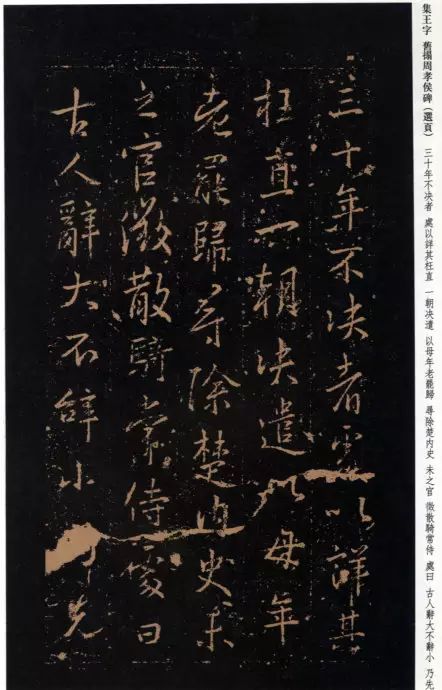 集王字 舊搨周孝侯碑（選頁） 三十年不决者 處以詳其枉直 一朝决遣 以母年老罷歸 尋除楚内史 未之官 徵散騎常侍 處曰 古人辭大不辭小 乃先
三十年不决者處以詳其
枉直一朝决遣以母年
老罷歸尋除楚内史未
之官徵散騎常侍處曰
古人辭大不辭小乃先